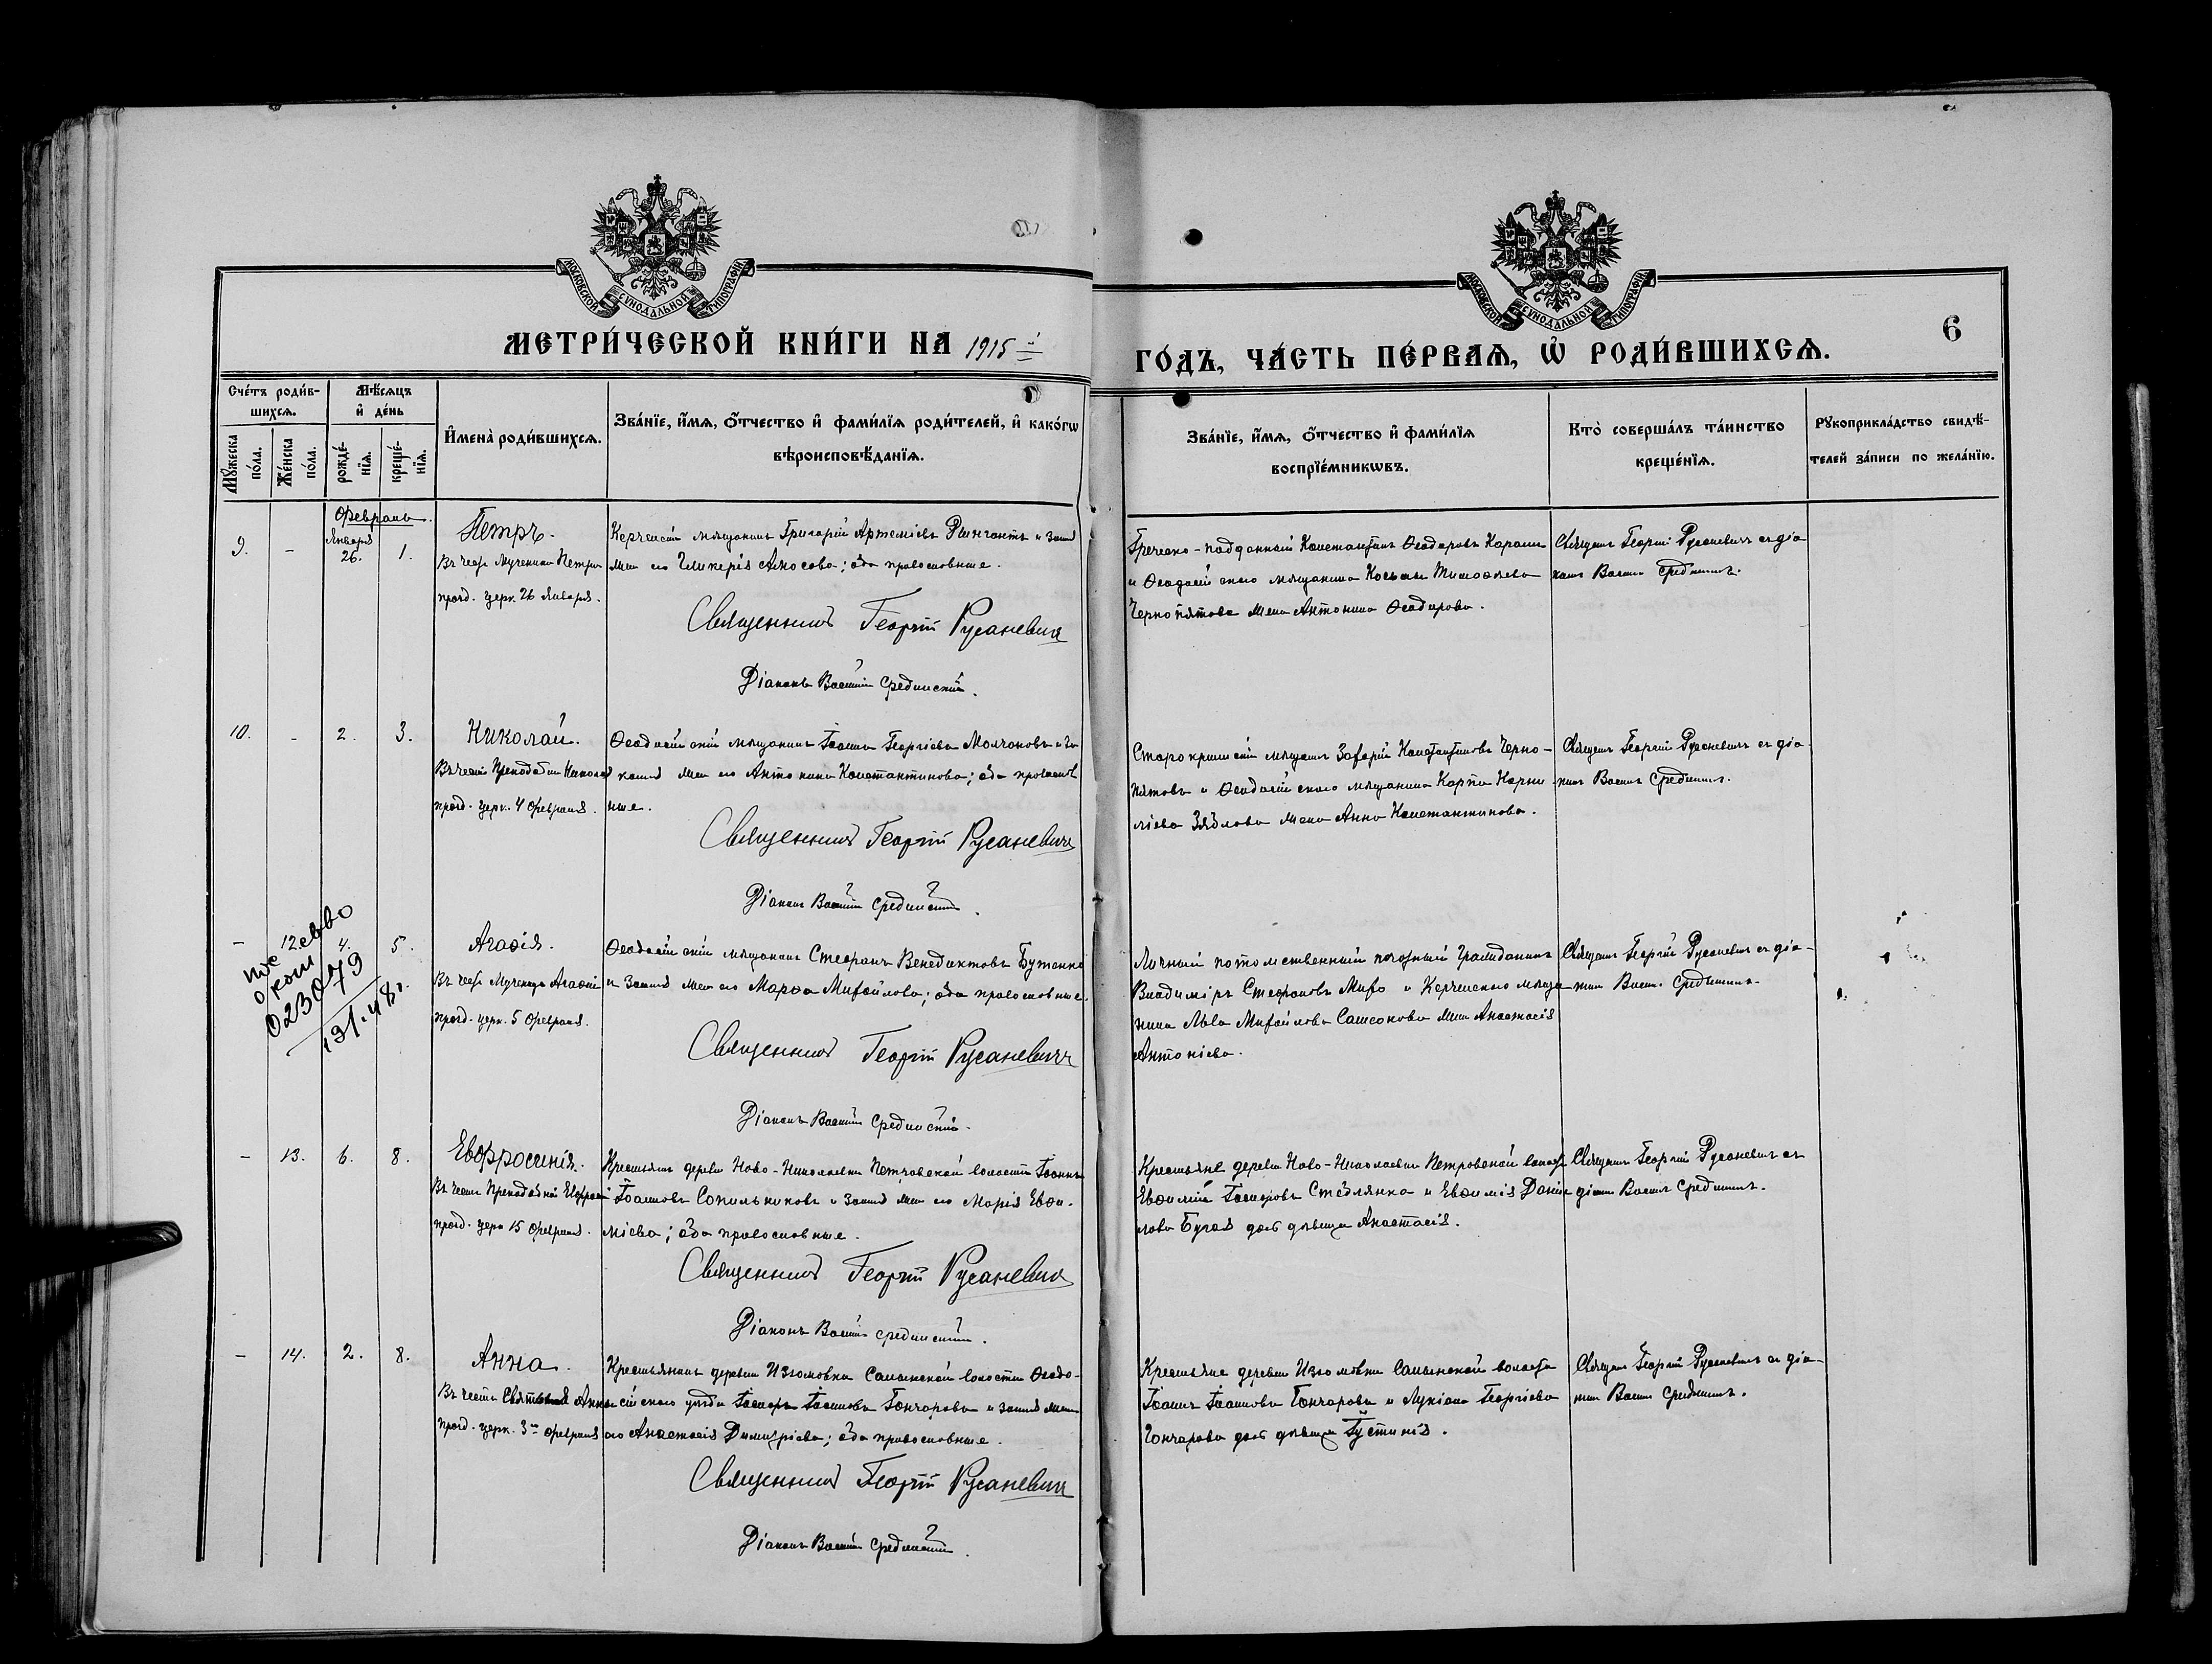 МОСКОВСКОЙ СУНОДАЛЬНОЙ ТИПОГРАФІИ
МОСКОВСКОЙ СУНОДАЛЬНОЙ ТИПОГРАФІИ
МЕТРИ́ЧЕСКОЙ КНИ́ГИ НА 1915й
ГО́ДЪ, ЧА́СТЬ ПЕ́РВАѦ, Ѡ҆ РОДИ́ВШИХСѦ.
6
Сче́тъ роди́в-
шихсѧ.
Мꙋ́жеска по́ла.
Же́нска по́ла.
Мѣ́сѧцъ
и҆ де́нь
рожде́-нїѧ.
креще́-нїѧ.
И҆мена̀ роди́вшихсѧ.
Зва́нїе, и҆́мѧ, ѻ҆́тчество и҆ фами́лїѧ роди́телей, и҆ како́гѡ
вѣроисповѣ́данїѧ.
Зва́нїе, и҆́мѧ, ѻ҆́тчество и҆ фами́лїѧ
воспрїе́мникѡвъ.
Кто̀ соверша́лъ та́инство
креще́нїѧ.
Рꙋкоприкла́дство свидѣ́-
телей за́писи по жела́нїю.
Февраль.
9.
-
Января
26.
1.
Петръ.
Въ честь Мученика Петра
празд. церк. 26 Января.
Керченскій мѣщанинъ Григорій Артеміевъ и законн.
жена его Гликерія Амосова; оба православные.
Священникъ Георгій Русаневичъ
Діаконъ Василій Срединскій.
Греческо-подданный Константинъ Ѳеодоровъ
и Ѳеодосійскаго мѣщанина Космы Тимоѳеева
Чернопятова жена Антонина Ѳеодорова.
Священ. Георгій Русаневичъ съ діа-
кон. Васил. Срединскимъ.
10.
-
2.
3.
Николай.
Въ честь Преподобн. Николая
празд. церк. 4 Февраля.
Ѳеодосійскій мѣщанинъ Іоаннъ Георгіевъ Молчановъ и за-
конная жена его Антонина Константинова; оба православ-
ные.
Священникъ Георгій Русаневичъ
Діаконъ Василій Срединскій.
Старокрымскій мѣщан. Захарій Константиновъ Черно-
пятовъ и Ѳеодосійскаго мѣщанина Карпа Корни-
ліева Зяблова жена Анна Константинова.
Священ. Георгій Русаневичъ съ діа-
кон. Васил. Срединскимъ.
-
12.
4.
5.
023079
1948г.
Агаѳія.
Въ честь Мученицы Агаѳіи
празд. церк. 5 Февраля.
Ѳеодосійскій мѣщанинъ Стефанъ Венедиктовъ Бутенко
и законн. жена его Марѳа Михайлова; оба православные.
Священникъ Георгій Русаневичъ
Діаконъ Василій Срединскій.
Личный потомственный почетный гражданинъ
Владиміръ Стефановъ и Керченскаго мѣща-
нина Льва Михайлова Самсонова жена Анастасія
Антоніева.
Священ. Георгій Русаневичъ съ діа-
кон. Васил. Срединскимъ.
-
13.
6.
8.
Евфросинія.
Въ честь Преподобной Евфросин.
празд. церк. 15 Февраля.
Крестьянинъ деревни Ново-Николаевки Петровской волости Іоаннъ
Іоанновъ Сопильниковъ и законн. жена его Марія Евѳи-
міева; оба православные.
Священникъ Георгій Русаневичъ
Діаконъ Василій Срединскій.
Крестьяне деревни Ново-Николаевки Петровской волости
Евѳимій Стеблянко и Евѳимія Дани-
лова Бугая дочь дѣвица Анастасія.
Священ. Георгій Русаневичъ съ
діакон. Васил. Срединскимъ.
-
14.
2.
8.
Анна.
Въ честь Святой Анны
празд. церк. 3го Февраля
Крестьянинъ деревни Изюмовки Салынской волости Ѳеодо-
сійскаго уѣзда Іоанновъ Гончаровъ и законн. жена
его Анастасія Димитріева; оба православные.
Священникъ Георгій Русаневичъ
Діаконъ Василій Срединскій.
Крестьяне деревни Изюмовки Салынской волости
Іоаннъ Іоанновъ Гончаровъ и Лукіана Георгіева
Гончарова дочь дѣвица Іустинія.
Священ. Георгій Русаневичъ съ діа-
кон. Васил. Срединскимъ.